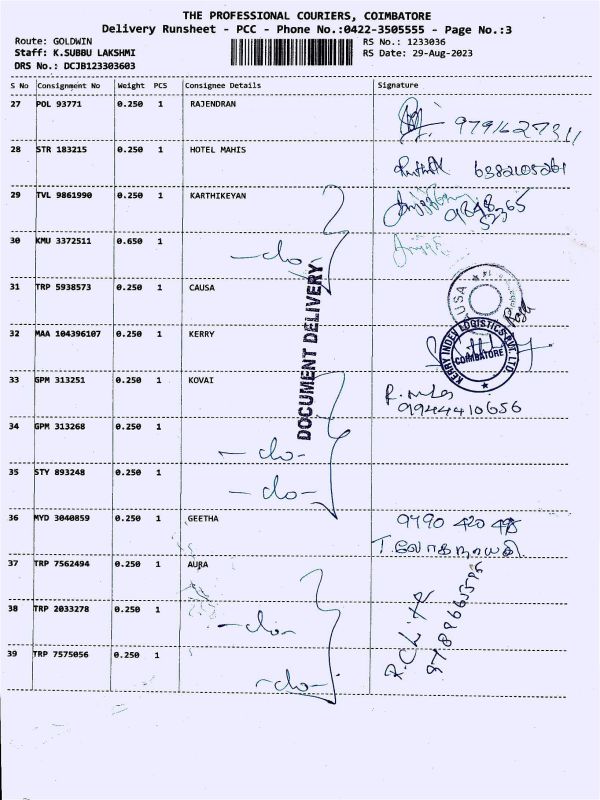 THE PROFESSIONAL COURIERS, COIMBATORE
Delivery Runsheet - PCC - Phone No.:0422-3505555 - Page No.:3
Route: GOLDWIN
RS No.: 1233036
Staff: K.SUBBU LAKSHMI
RS Date: 29-Aug-2023
DRS No.: DCJB123303603
S No Consignment No Weight PCS Consignee Details Signature
27 POL 93771 0.250 1 RAJENDRAN
9791627311
28 STR 183215 0.250 1 HOTEL MAHIS
6382105261
29 TVL 9861990 0.250 1 KARTHIKEYAN
30 KMU 3372511 0.650 1
-do-
31 TRP 5938573 0.250 1 CAUSA
USA
32 MAA 104396107 0.250 1 KERRY
KERRY INDEV LOGISTICS PVT. LTD.
COIMBATORE
DOCUMENT DELIVERY
33 GPM 313251 0.250 1 KOVAI
9944410656
34 GPM 313268 0.250 1
-do-
35 STY 893248 0.250 1
-do-
36 MYD 3040859 0.250 1 GEETHA
9790 420 498
T. லோகநாயகி
37 TRP 7562494 0.250 1 AURA
38 TRP 2033278 0.250 1
-do-
39 TRP 7575056 0.250 1
-do-
9789665595